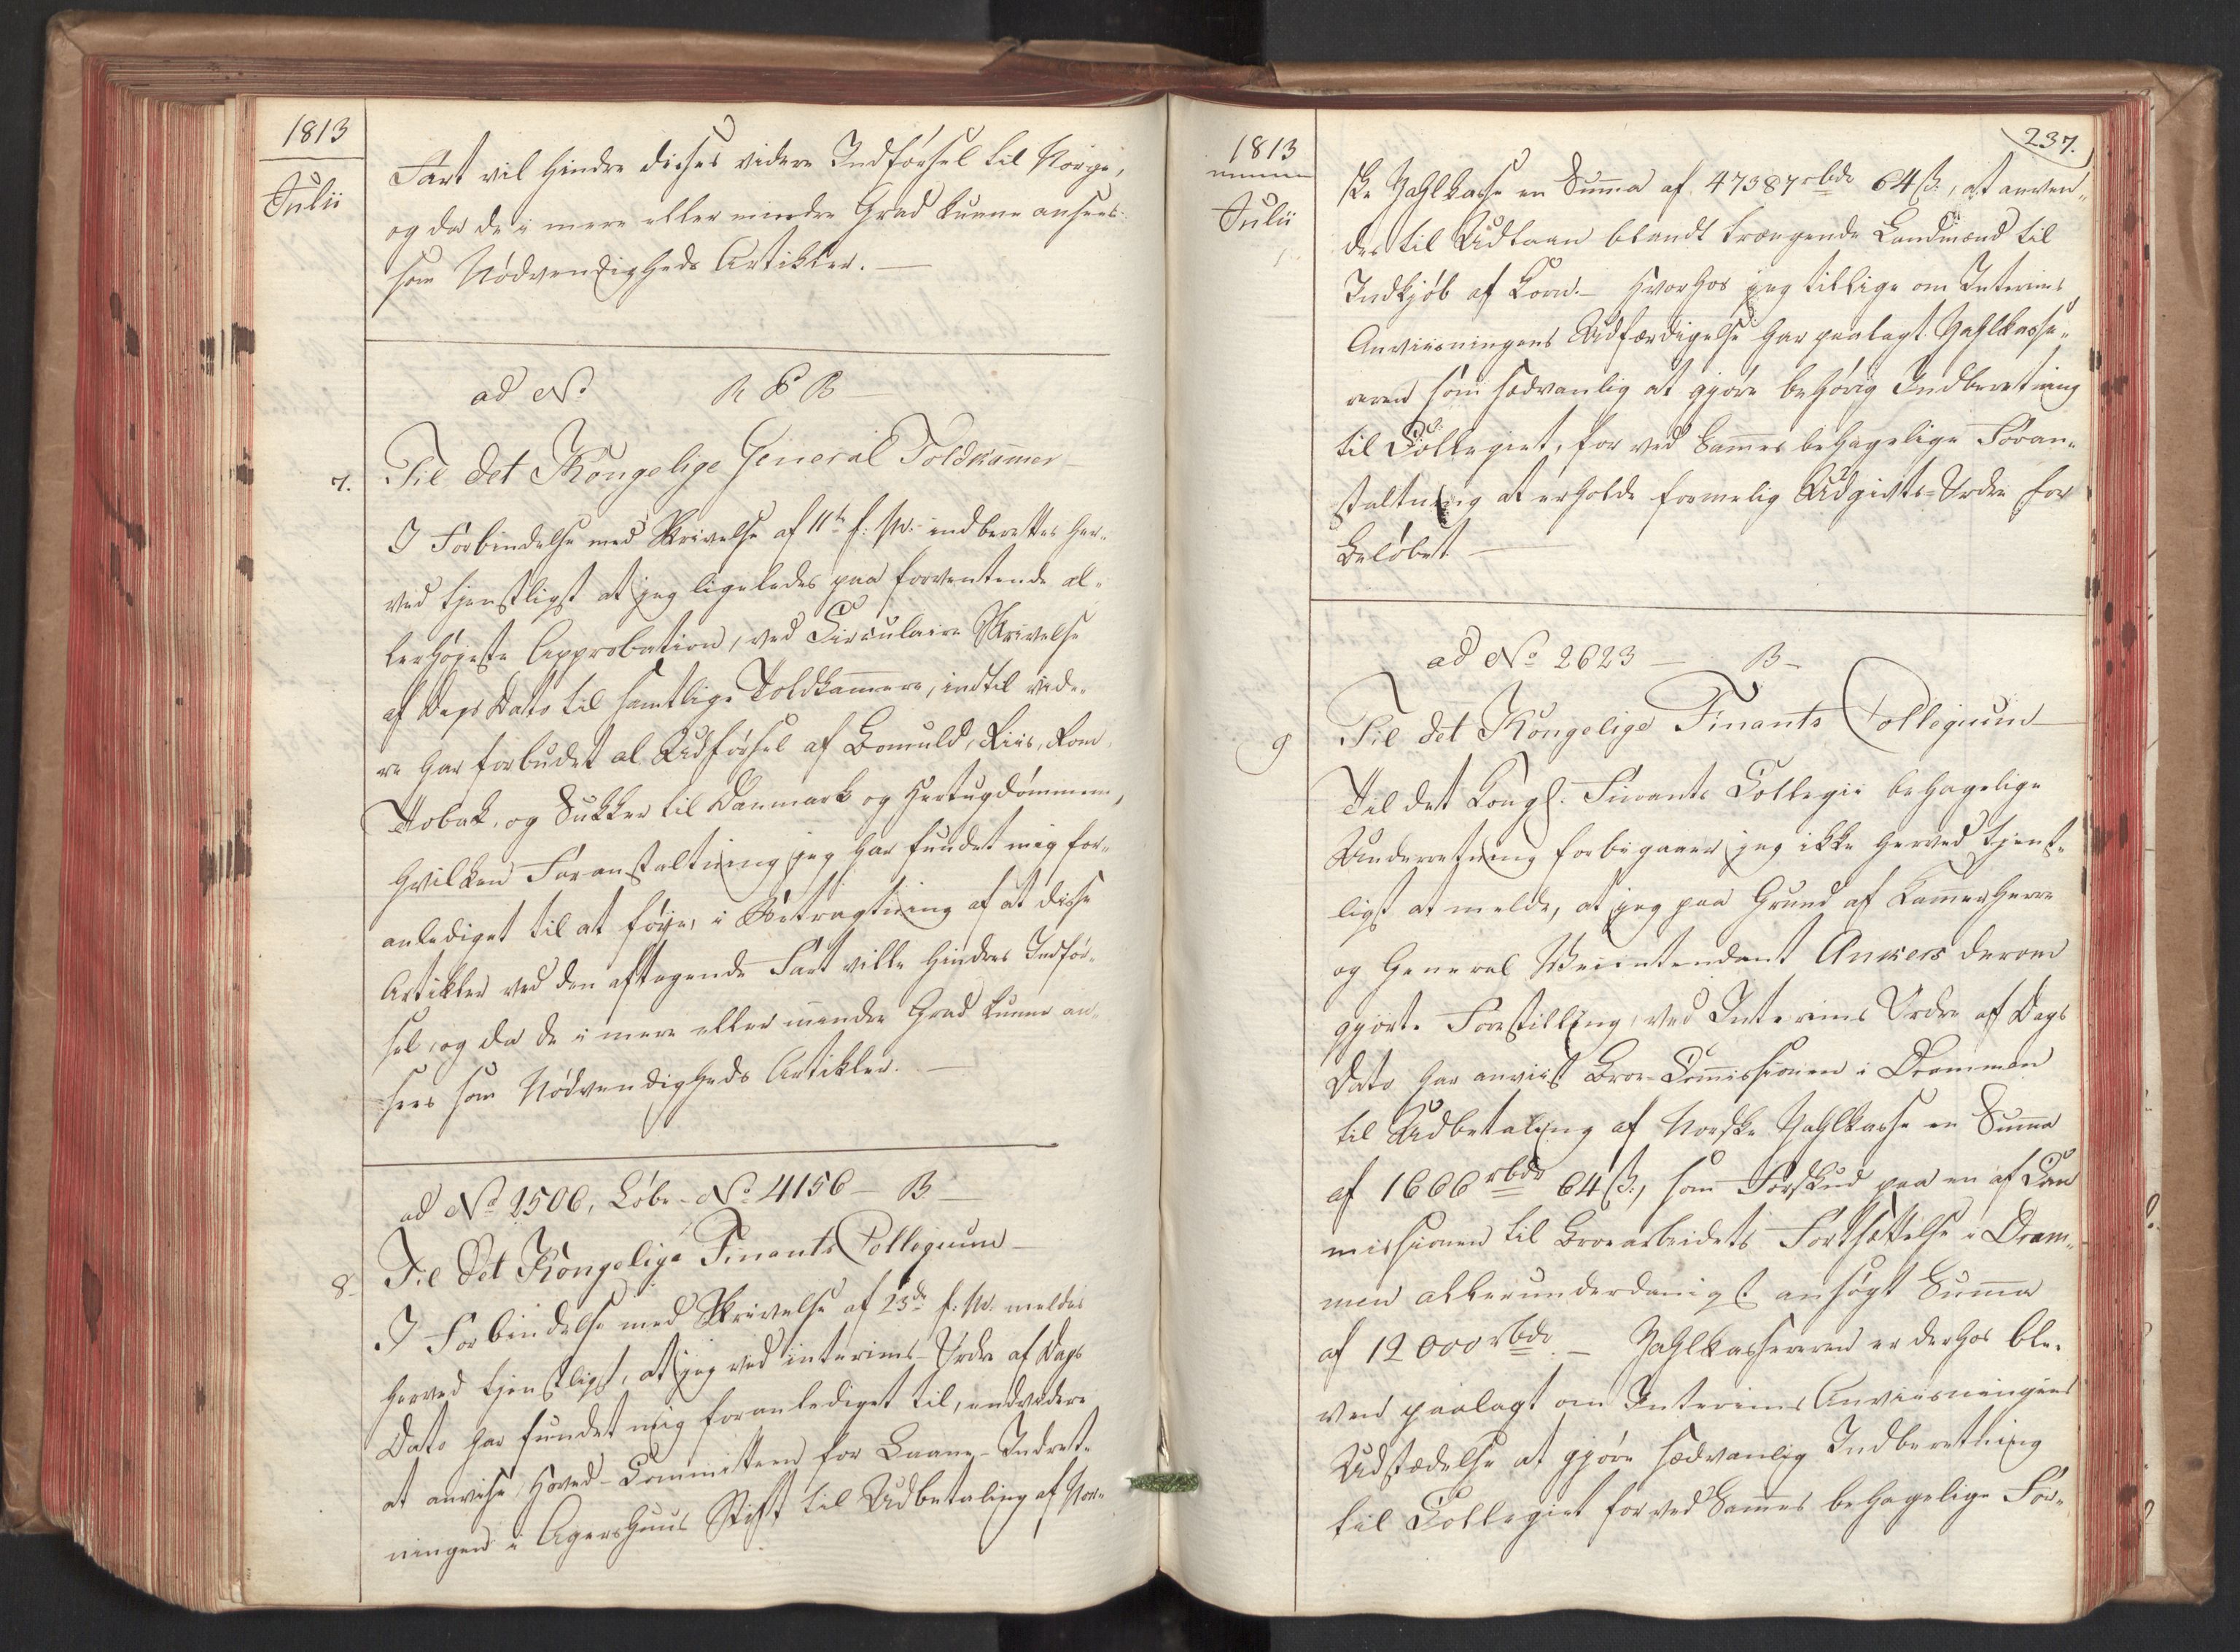 1813
Julii
Fart vil hindre disses videre Indførsel til Norge,
og da de i mere eller mindre Grad kunne ansees
som Nødvendigheds Artikler. —
ad No R & B —
7. Til det Kongelige General Toldkammer —
I Forbindelse med Skrivelse af 11te f: M: indberettes her-
ved tjenstligst at jeg ligeledes paa forventende al-
lerhøjeste Approbation, ved Circulaire Skrivelse
af Dags Dato til samtlige Toldkamere, indtil vide-
re har forbudet al Udførsel af Bomuld, Riis, Rom
Tobak, og Sukker til Danmark og Hertugdømmene,
hvilken Foranstaltning jeg har fundet mig for-
anlediget til at føye, i Betragtning af at disse
Artikler ved den aftagende Fart ville hindres Indfør-
sel, og da de i mere eller mindre Grad kunne an-
sees som Nødvendigheds Artikler. —
ad No 2506, Løbe-No 4156 — B —
8. Til Det Kongelige Finants Collegium —
I Forbindelse med Skrivelse af 23de f: M. meldes
herved tjenstligst, at jeg ved interims-Ordre af Dags
Dato har fundet mig foranlediget til, endvidere
at anvise Hoved-Committeen for Laane-Indret-
ningen i Agershuus Stift til Udbetaling af Nor-
1813
Julii
237.
ske Zahlkasse en Summa af 47387 rbdr 64 ß:, at anven-
des til Udlaan blandt trængende Landmænd til
Indkjøb af Korn. — Hvorhos jeg tillige om Interims
Anviisningens Udfærdigelse har paalagt Zahlkasse-
reren som sædvanlig at gjøre behørig Indberetning
til Collegiet, for ved Sammes behagelige Foran-
staltning at erholde formelig Udgivts-Ordre for
Beløbet —
ad No 2623 — B —
9 Til det Kongelige Finants Collegium —
Til det Kongl. Finants Collegii behagelige
Underretning forbigaaer jeg ikke herved tjenst-
ligst at melde, at jeg paa Grund af Kammerherre
og General Veiintendant Ankers derom
gjorte Forestilling, ved Interims Ordre af Dags
Dato har anviist Broe-Commissionen i Drammen
til Udbetaling af Norske Zahlkasse en Summa
af 1666 rbdr 64 ß:, som Forskud paa en af Com
missionen til Broearbeidets Fortsættelse i Dram-
men allerunderdanigst ansøgt Summa
af 12000 rbdr. — Zahlkassereren er derhos ble-
ven paalagt om Interims Anviisningens
Udstædelse at gjøre sædvanlig Indberetning
til Collegiet for ved Sammes behagelige For-